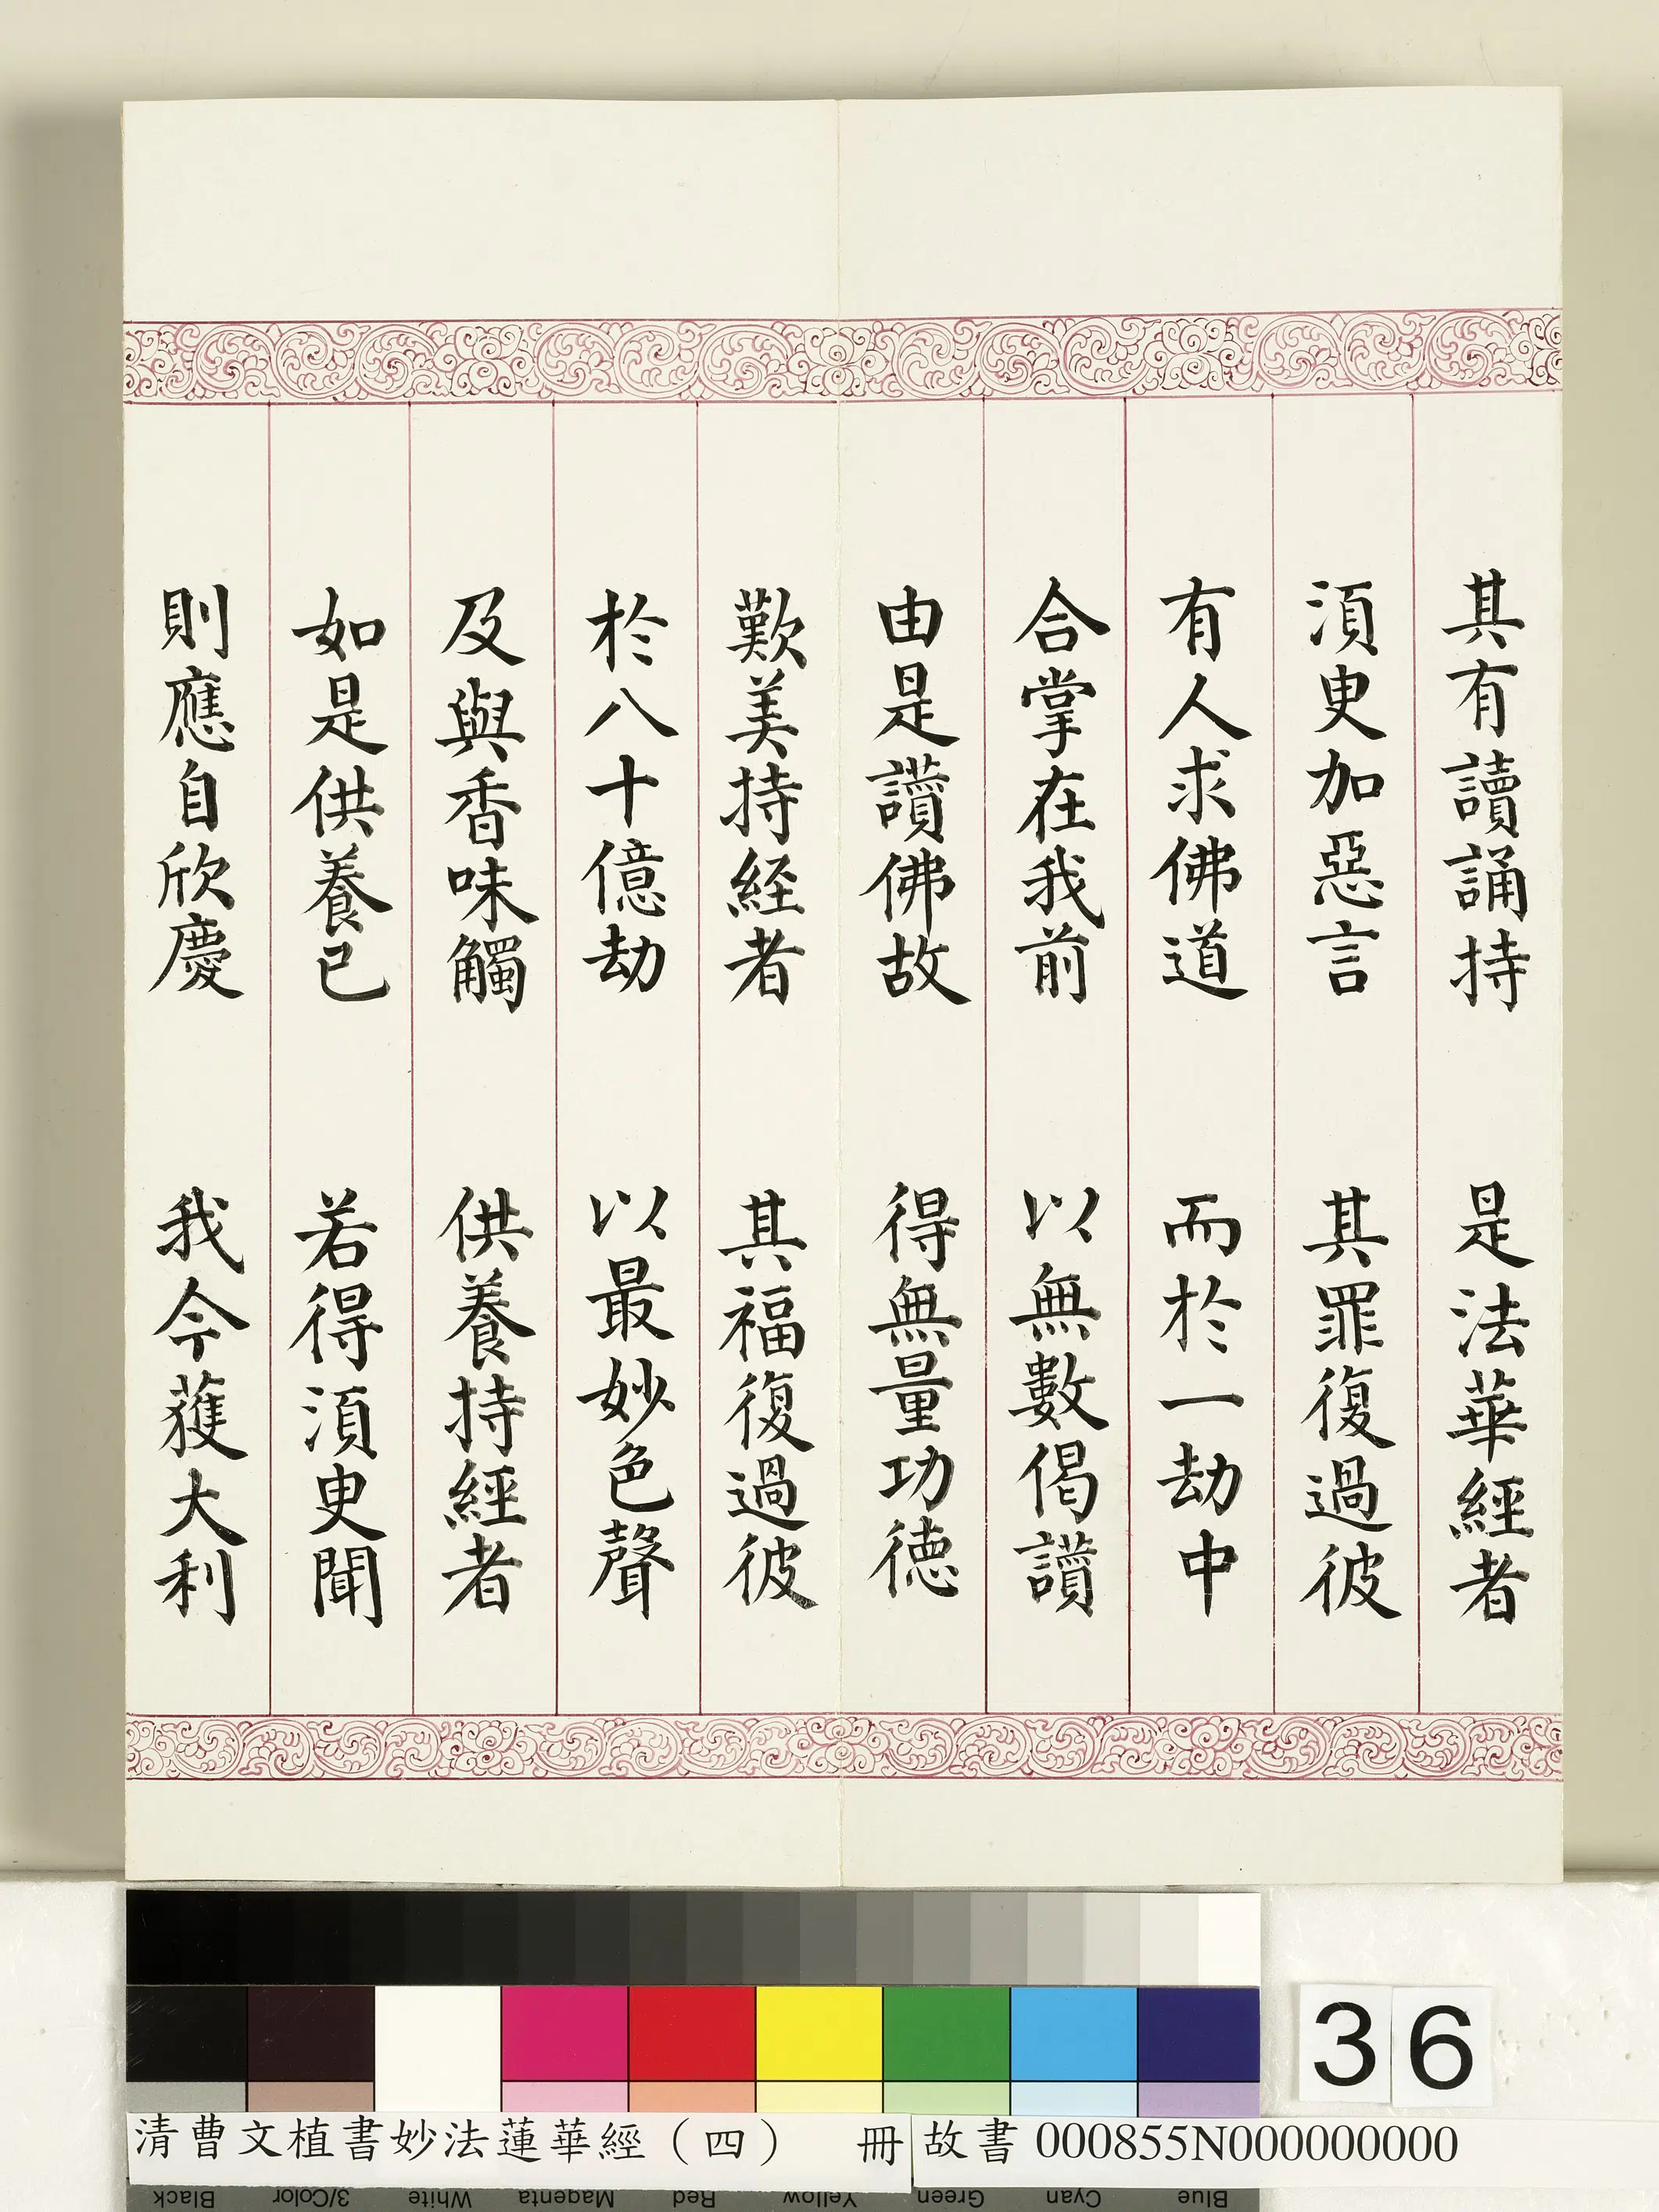 其有讀誦持 是法華經者
須臾加惡言 其罪復過彼
有人求佛道 而於一劫中
合掌在我前 以無數偈讚
由是讚佛故 得無量功德
歎美持經者 其福復過彼
於八十億劫 以最妙色聲
及與香味觸 供養持經者
如是供養已 若得須臾聞
則應自欣慶 我今獲大利
36
清曹文植書妙法蓮華經（四） 冊 故書 000855N000000000
Black 3/Color White Magenta Red Yellow Green Cyan Blue